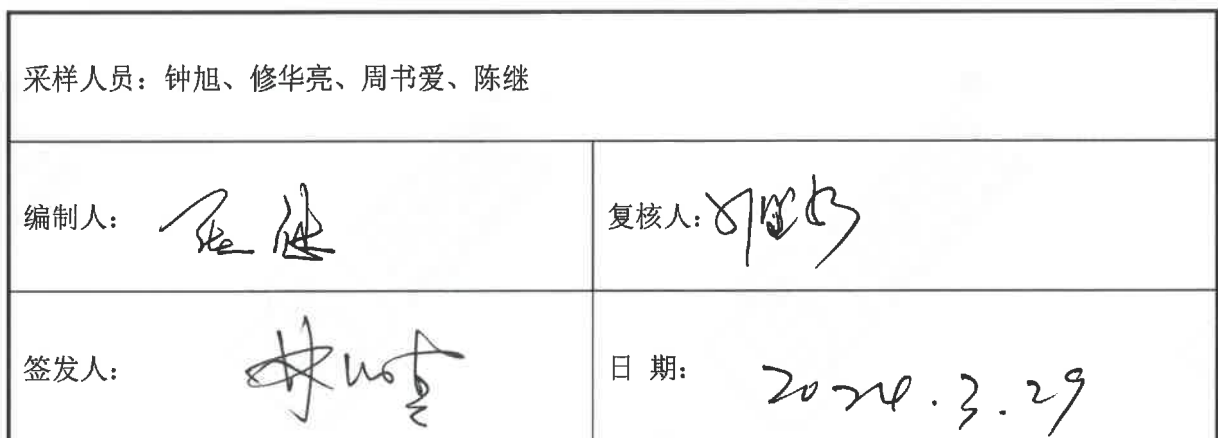 采样人员：钟旭、修华亮、周书爱、陈继
编制人：
复核人：
签发人：
日 期： 2024.3.29